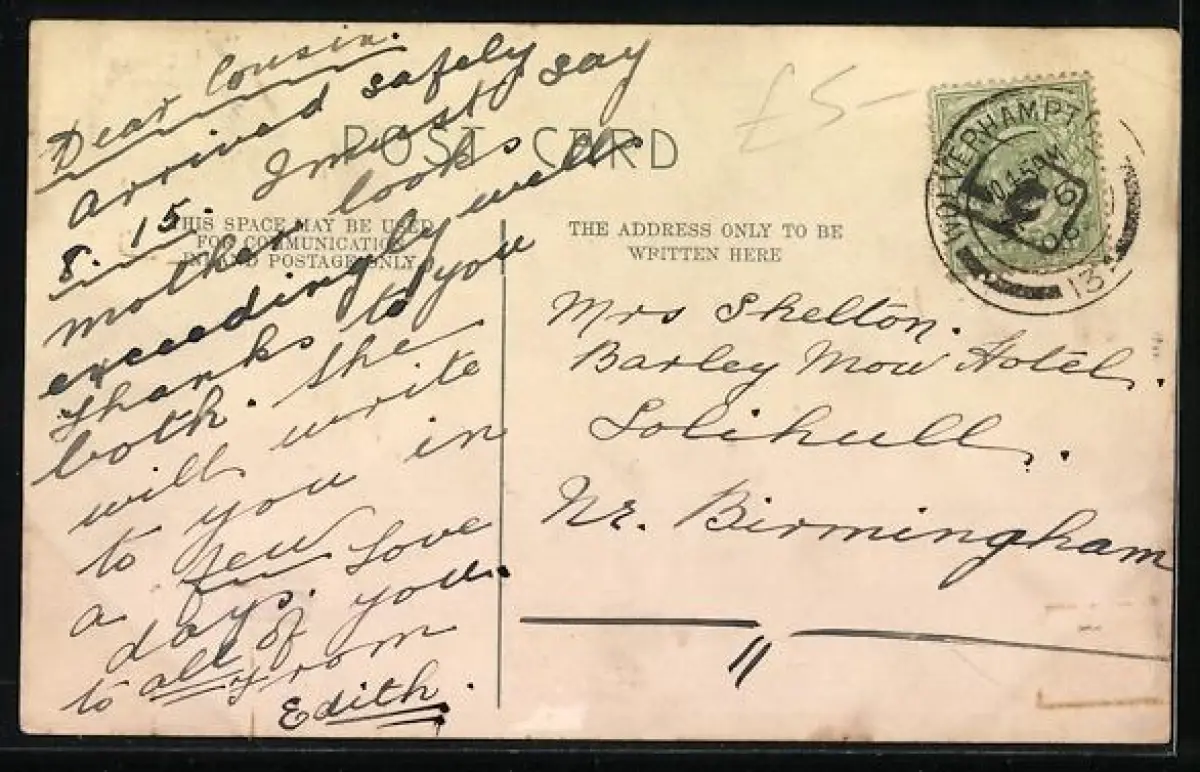 Dear Cousin.
Arrived safely
8. 15. I must say
mother looks
exceedingly well
thanks to you
both. She
will write
to you in
a few
days. Love
to all of you.
from
Edith.
POST CARD
THIS SPACE MAY BE USED
FOR COMMUNICATION
INLAND POSTAGE ONLY
£5-
THE ADDRESS ONLY TO BE
WRITTEN HERE
WOLVERHAMPT
06
13
Mrs Shelton.
Barley Mow Hotel.
Solihull.
Nr. Birmingham